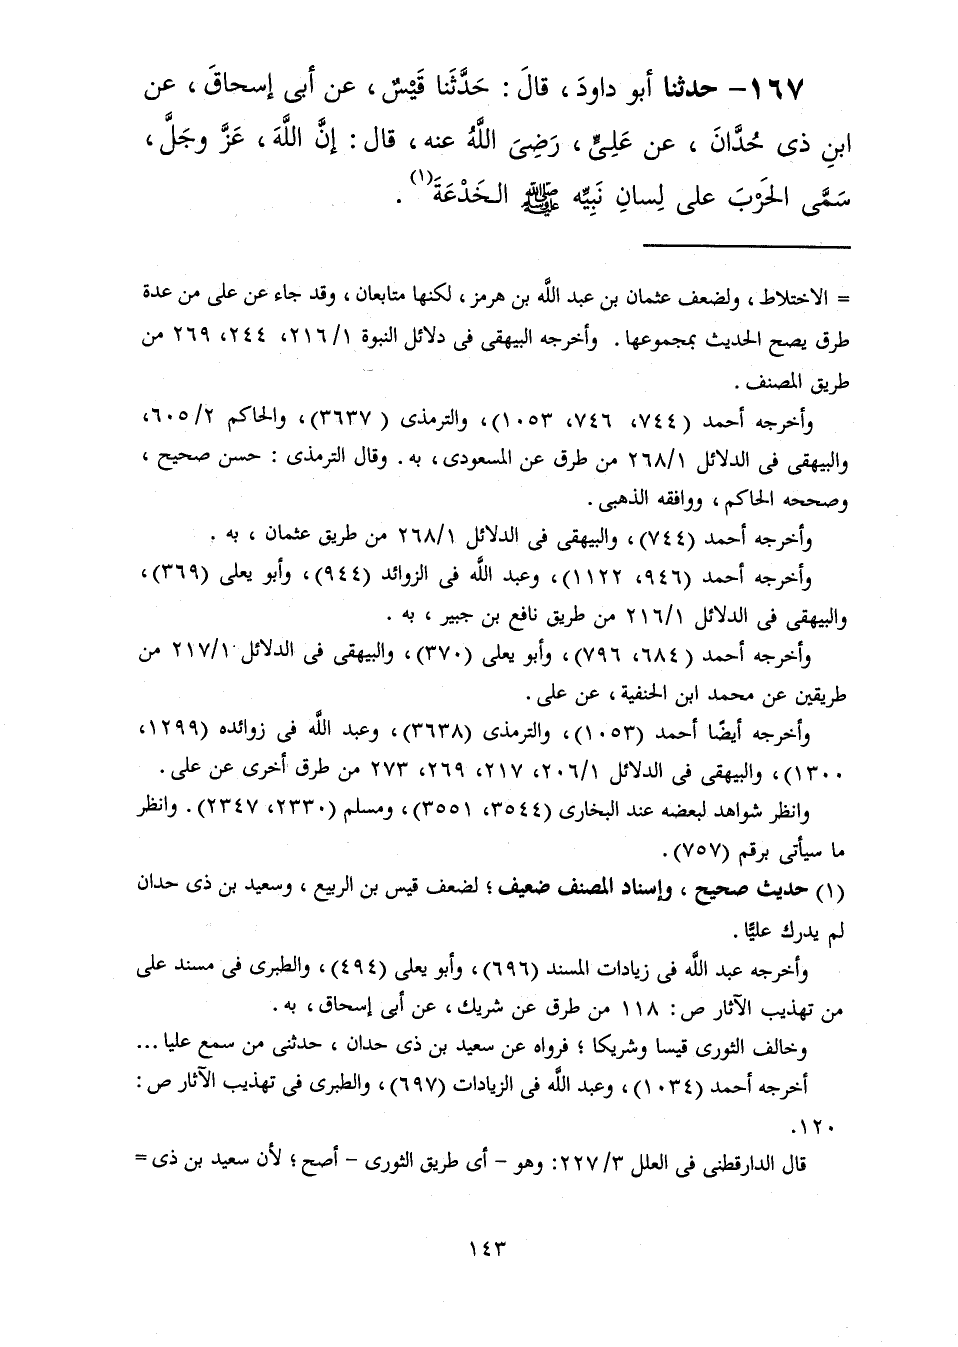 ١٦٧- حدثنا أبو داودَ، قالَ: حَدَّثَنا قَيْسٌ، عن أبى إسحاقَ، عن
ابنِ ذى حُدَّانَ، عن عَلِىٍّ، رَضِىَ اللَّهُ عنه، قال: إنَّ اللَّهَ، عَزَّ وجَلَّ،
سَمَّى الحَرْبَ على لِسانِ نَبِيِّه ﷺ الخَدْعَةَ(١).
= الاختلاط، ولضعف عثمان بن عبد اللَّه بن هرمز، لكنها متابعان، وقد جاء عن على من عدة
طرق يصح الحديث بمجموعها. وأخرجه البيهقى فى دلائل النبوة ٢١٦/١، ٢٤٤، ٢٦٩ من
طريق المصنف.
وأخرجه أحمد (٧٤٤، ٧٤٦، ١٠٥٣)، والترمذى (٣٦٣٧)، والحاكم ٦٠٥/٢،
والبيهقى فى الدلائل ٢٦٨/١ من طرق عن المسعودى، به. وقال الترمذى: حسن صحيح،
وصححه الحاكم، ووافقه الذهبى.
وأخرجه أحمد (٧٤٤)، والبيهقى فى الدلائل ٢٦٨/١ من طريق عثمان، به.
وأخرجه أحمد (٩٤٦، ١١٢٢)، وعبد اللَّه فى الزوائد (٩٤٤)، وأبو يعلى (٣٦٩)،
والبيهقى فى الدلائل ٢١٦/١ من طريق نافع بن جبير، به.
وأخرجه أحمد (٦٨٤، ٧٩٦)، وأبو يعلى (٣٧٠)، والبيهقى فى الدلائل ٢١٧/١ من
طريقين عن محمد ابن الحنفية، عن على.
وأخرجه أيضًا أحمد (١٠٥٣)، والترمذى (٣٦٣٨)، وعبد اللَّه فى زوائده (١٢٩٩،
١٣٠٠)، والبيهقى فى الدلائل ٢٠٦/١، ٢١٧، ٢٦٩، ٢٧٣ من طرق أخرى عن على.
وانظر شواهد لبعضه عند البخارى (٣٥٤٤، ٣٥٥١)، ومسلم (٢٣٣٠، ٢٣٤٧). وانظر
ما سيأتى برقم (٧٥٧).
(١) حديث صحيح، وإسناد المصنف ضعيف؛ لضعف قيس بن الربيع، وسعيد بن ذى حدان
لم يدرك عليًّا.
وأخرجه عبد اللَّه فى زيادات المسند (٦٩٦)، وأبو يعلى (٤٩٤)، والطبرى فى مسند على
من تهذيب الآثار ص: ١١٨ من طرق عن شريك، عن أبى إسحاق، به.
وخالف الثورى قيسا وشريكا؛ فرواه عن سعيد بن ذى حدان، حدثنى من سمع عليا...
أخرجه أحمد (١٠٣٤)، وعبد اللَّه فى الزيادات (٦٩٧)، والطبرى فى تهذيب الآثار ص:
١٢٠.
قال الدارقطنى فى العلل ٢٢٧/٣: وهو - أى طريق الثورى - أصح؛ لأن سعيد بن ذى =
١٤٣